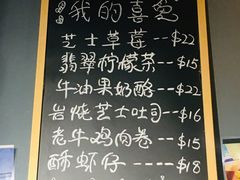 我的喜爱
芝士草莓--$22
翡翠柠檬茶--$15
牛油果奶酪--$22
岩烧芝士吐司--$16
老牛鸡肉卷--$15
酥虾仔--$18